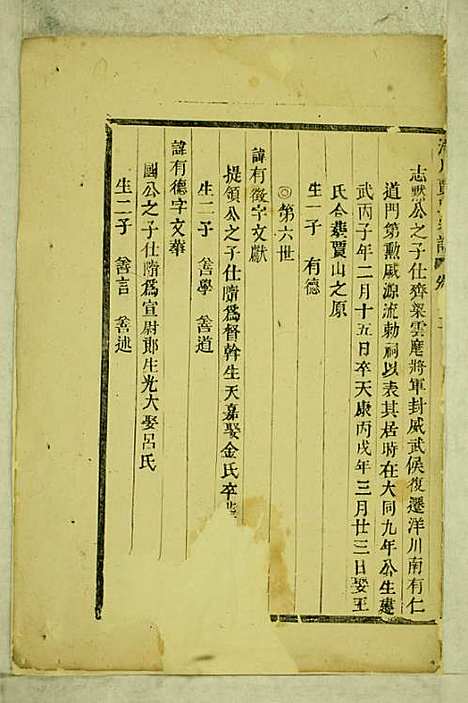 志默公之子仕齊梁雲麾將軍封威武侯復遷洋川南有仁
道門第勲戚源流勅祠以表其居時在大同九年公生建
武丙子年二月十五日卒天康丙戌年三月廿三日娶王
氏合葬賈山之原
生一子 有德
◎第六世
諱有徵字文獻
提領公之子仕隋爲督幹生天嘉娶金氏卒
生二子 善學 善道
諱有德字文華
國公之子仕隋爲宣尉郎生光大娶呂氏
生二子 善言 善述